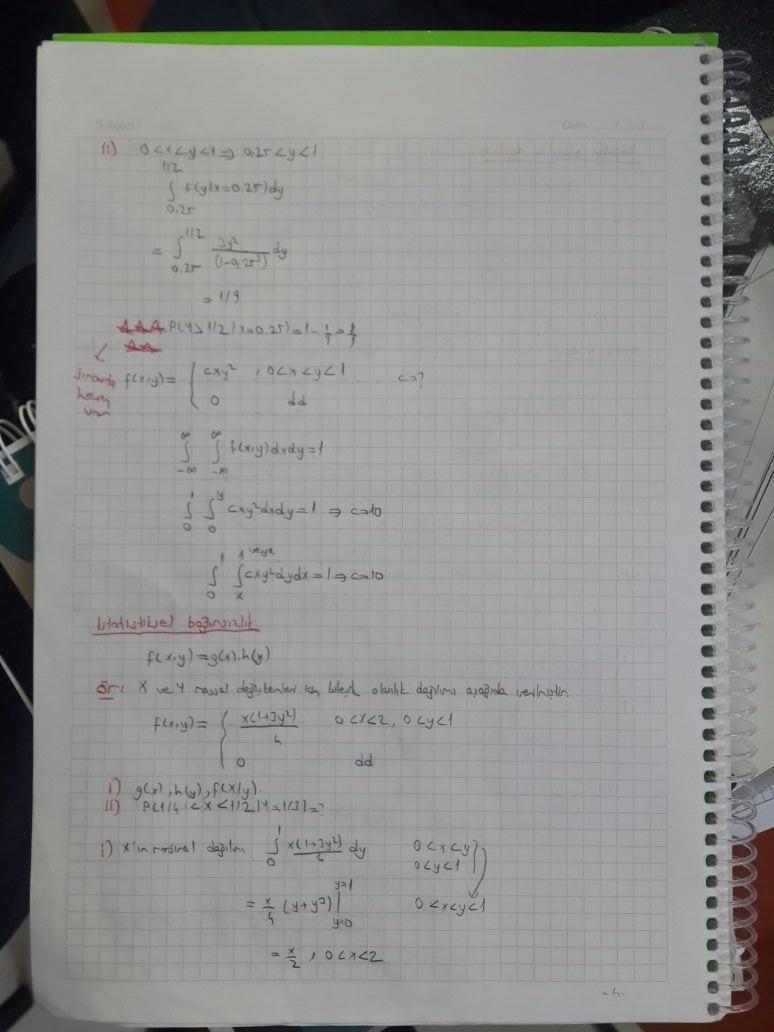 Subject :
Date : ....../....../......
ii) 0<x<y<1 ⇒ 0,25<y<1
∫_{0,25}^{1/2} f(y|x=0.25)dy
= ∫_{0,25}^{1/2} 3y²/(1-0,25³) dy
= 1/9
P(Y>1/2 | x=0.25) = 1 - 1/9 = 8/9
f(x,y) = { cxy² , 0<x<y<1    c=?
0    dd
∫_{-∞}^{∞} ∫_{-∞}^{∞} f(x,y)dxdy=1
∫_0^1 ∫_0^y cxy²dxdy=1 ⇒ c=10
veya
∫_0^1 ∫_x^1 cxy²dydx=1 ⇒ c=10
İstatistiksel bağımsızlık
f(x,y)=g(x).h(y)
Ör: X ve Y rassal değişkenler için bileşik olasılık dağılımı aşağıda verilmiştir.
f(x,y) = { x(1+3y²)/4    0<x<2, 0<y<1
0    dd
i) g(x), h(y), f(x|y).
ii) P(1/4 < X < 1/2 | Y=1/3)=?
i) X'in marjinal dağılımı ∫_0^1 x(1+3y²)/4 dy    0<x<y
0<y<1
= x/4 (y+y³) |_{y=0}^{y=1}    0<x<y<1
= x/2 , 0<x<2
-4-